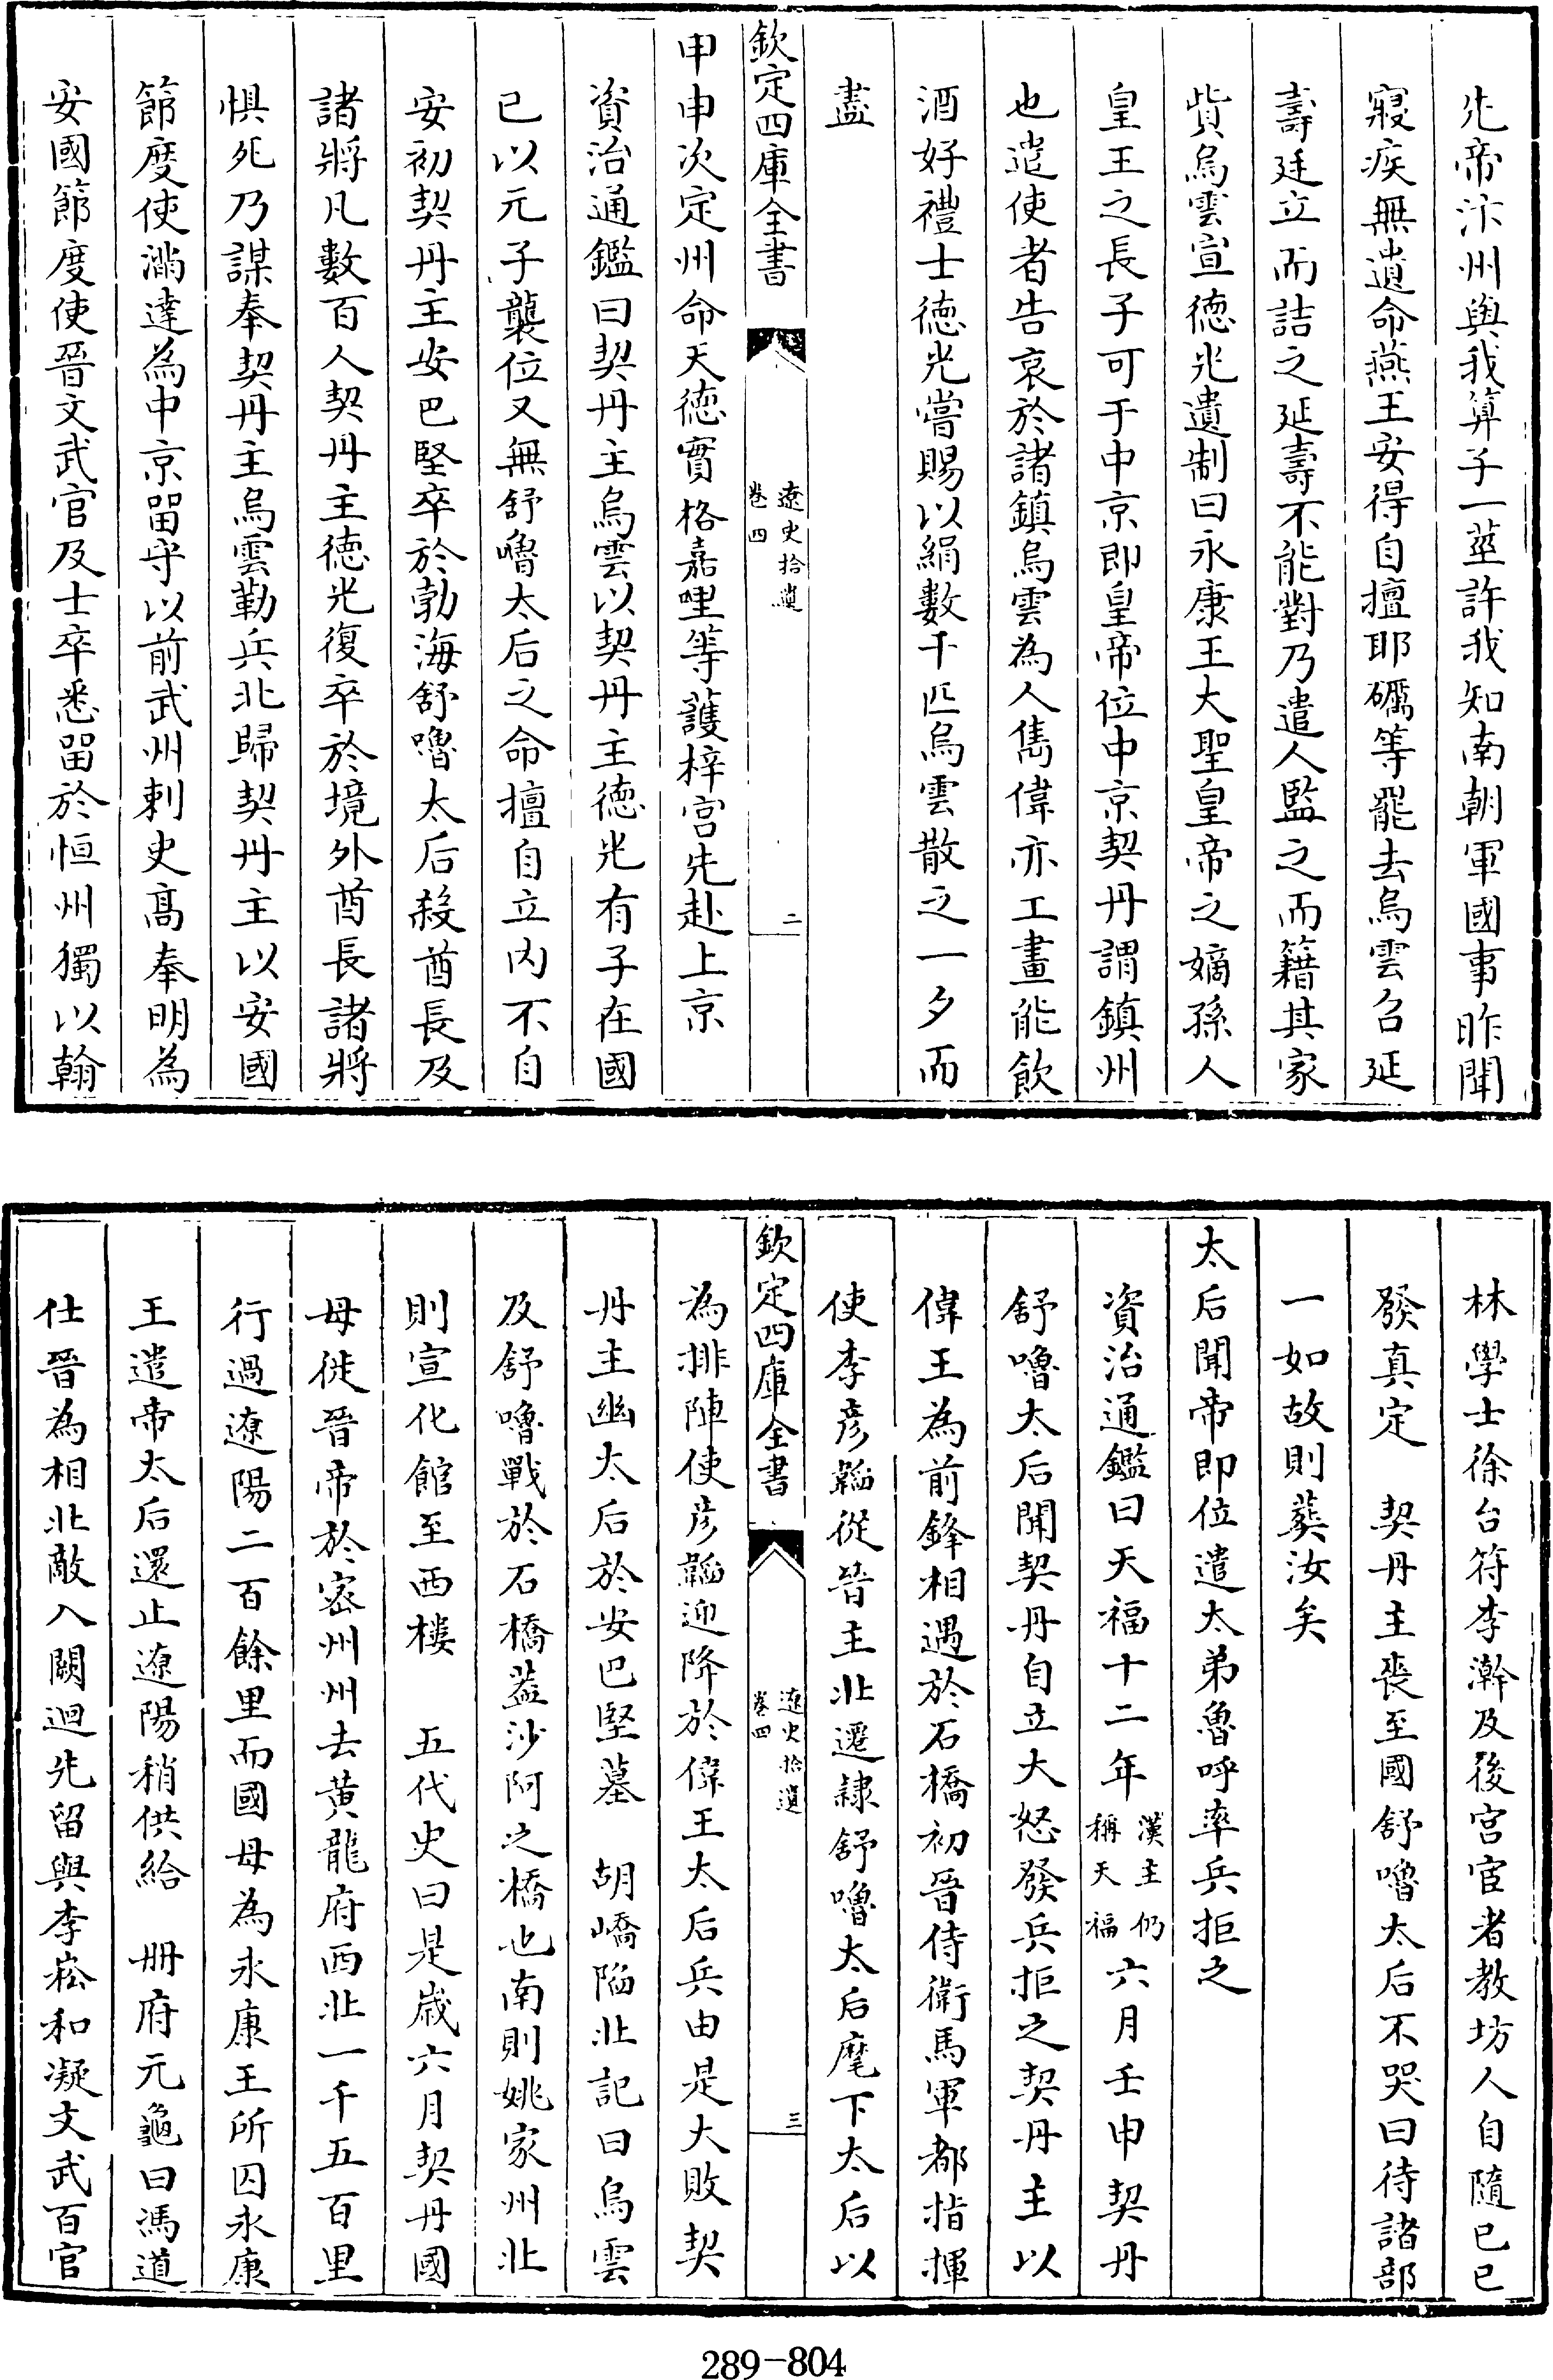 先帝汴州與我算子一莖許我知南朝軍國事昨聞
寢疾無遺命燕王安得自擅耶礪等罷去烏雲召延
壽廷立而詰之延壽不能對乃遣人監之而籍其家
貲烏雲宣德光遺制曰永康王大聖皇帝之嫡孫人
皇王之長子可于中京即皇帝位中京契丹謂鎮州
也遣使者告哀於諸鎮烏雲為人儁偉亦工畫能飲
酒好禮士德光嘗賜以絹數千匹烏雲散之一夕而
盡
欽定四庫全書
遼史拾遺
卷四
二
甲申次定州命天德實格嘉哩等護梓宮先赴上京
資治通鑑曰契丹主烏雲以契丹主德光有子在國
已以元子襲位又無舒嚕太后之命擅自立內不自
安初契丹主安巴堅卒於勃海舒嚕太后殺酋長及
諸將凡數百人契丹主德光復卒於境外酋長諸將
懼死乃謀奉契丹主烏雲勒兵北歸契丹主以安國
節度使滿達為中京留守以前武州刺史高奉明為
安國節度使晉文武官及士卒悉留於恒州獨以翰
林學士徐台符李澣及後宮宦者教坊人自隨已巳
發真定　契丹主喪至國舒嚕太后不哭曰待諸部
一如故則葬汝矣
太后聞帝即位遣太弟魯呼率兵拒之
資治通鑑曰天福十二年漢主仍稱天福六月壬申契丹
舒嚕太后聞契丹自立大怒發兵拒之契丹主以
偉王為前鋒相遇於石橋初晉侍衛馬軍都指揮
使李彦韜從晉主北遷隷舒嚕太后麾下太后以
欽定四庫全書
遼史拾遺
卷四
三
為排陣使彦韜迎降於偉王太后兵由是大敗契
丹主幽太后於安巴堅墓　胡嶠陷北記曰烏雲
及舒嚕戰於石橋葢沙阿之橋也南則姚家州北
則宣化館至西樓　五代史曰是歳六月契丹國
母徙晉帝於宻州州去黃龍府西北一千五百里
行過遼陽二百餘里而國母為永康王所囚永康
王遣帝太后還止遼陽稍供給　冊府元龜曰馮道
仕晉為相北敵入闕迴先留與李崧和凝文武百官
289-804